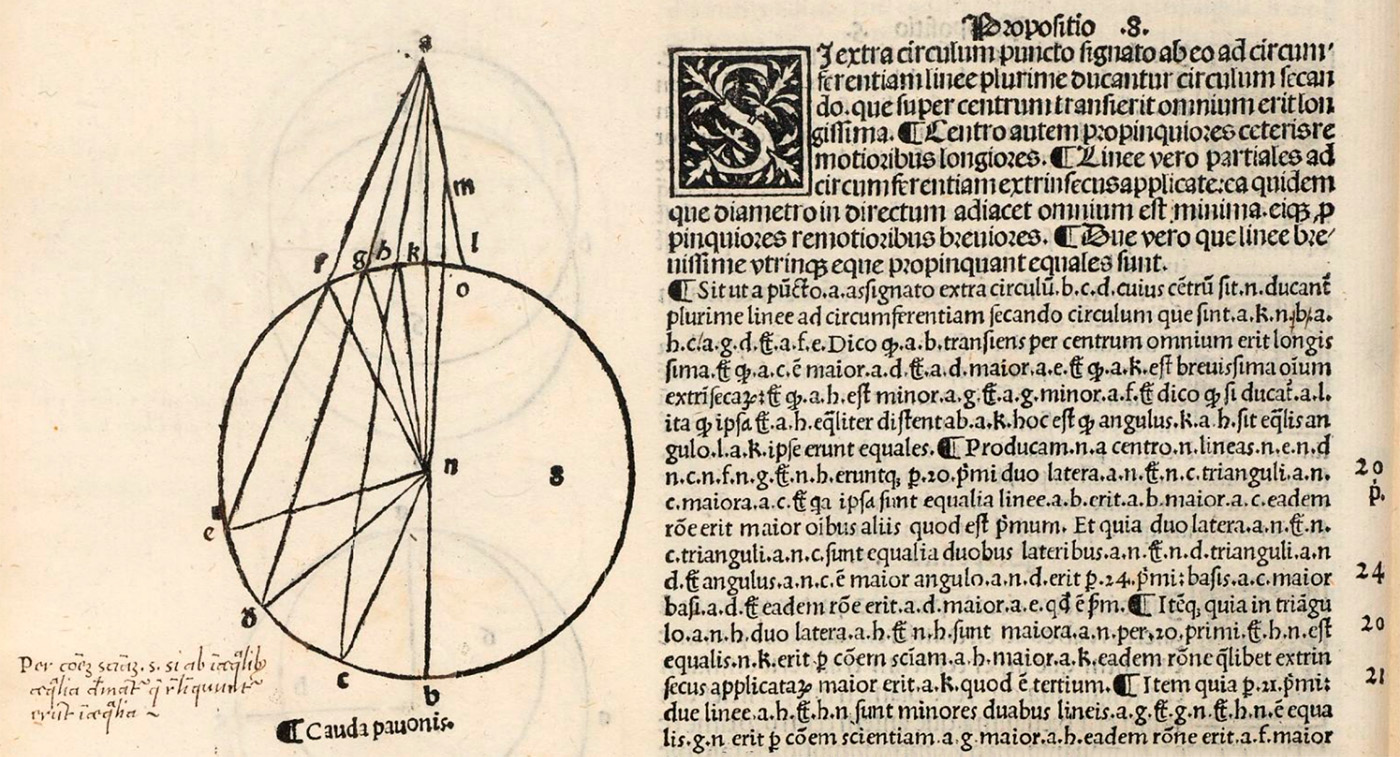 Propositio .8.
SI extra circulum puncto signato ab eo ad circum
ferentiam linee plurime ducantur circulum secan
do. que super centrum transierit omnium erit lon
gissima. ¶ Centro autem propinquiores ceteris re
motioribus longiores. ¶ Linee vero partiales ad
circumferentiam extrinsecus applicate: ea quidem
que diametro in directum adiacet omnium est minima. eiqꝫ ꝓ
pinquiores remotioribus breuiores. ¶ Due vero que linee bre
uissime vtrinqꝫ eque propinquant equales sunt.
¶ Sit ut a pūcto .a. assignato extra circulū .b.c.d. cuius cētrū sit .n. ducant̄
plurime linee ad circumferentiam secando circulum que sint .a.k.n.b. a.
h.c. a.g.d. & a.f.e. Dico ꝙ .a.b. transiens per centrum omnium erit longis
sima. & ꝙ .a.c. ē maior .a.d. & .a.d. maior .a.e. & ꝙ .a.k. est breuissima oīum
extrīsecaꝝ: & ꝙ .a.h. est minor .a.g. & .a.g. minor .a.f. & dico ꝙ si ducat̄ .a.l.
ita ꝙ ipsa & .a.h. eq̄liter distent ab .a.k. hoc est ꝙ angulus .k.a.h. sit eq̄lis an
gulo .l.a.k. ipse erunt equales. ¶ Producam .n. a centro .n. lineas .n.e. n.d
n.c. n.f. n.g. & .n.h. eruntqꝫ ꝑ .20. p̄mi duo latera .a.n. & .n.c. trianguli .a.n.
c. maiora .a.c. & q̄a ipsa sunt equalia linee .a.b. erit .a.b. maior .a.c. eadem
rōe erit maior oībus aliis quod est p̄mum. Et quia duo latera .a.n. & .n.
c. trianguli .a.n.c. sunt equalia duobus lateribus .a.n. & .n.d. trianguli .a.n
d. & angulus .a.n.c. ē maior angulo .a.n.d. erit ꝑ .24. p̄mi: basis .a.c. maior
basi .a.d. & eadem rōe erit .a.d. maior .a.e. qd̄ ē s̄m. ¶ Itēqꝫ quia in triāgu
lo .a.n.h. duo latera .a.h. & n.h. sunt maiora .a.n. per .20. primi. & .h.n. est
equalis .n.k. erit ꝑ cōem sciam .a.h. maior .a.k. eadem rōne q̄libet extrin
secus applicataꝝ maior erit .a.k. quod ē tertium. ¶ Item quia ꝑ .21. p̄mi:
due linee .a.h. & .h.n sunt minores duabus lineis .a.g. & .g.n. & .h.n. ē equa
lis .g.n erit ꝑ cōem scientiam .a.g. maior .a.h. eadem rōne erit .a.f. maior
20
p̄.
24
20
21
a
m
f g h k l
o
n
8
e
d
c
b
¶ Cauda pauonis.